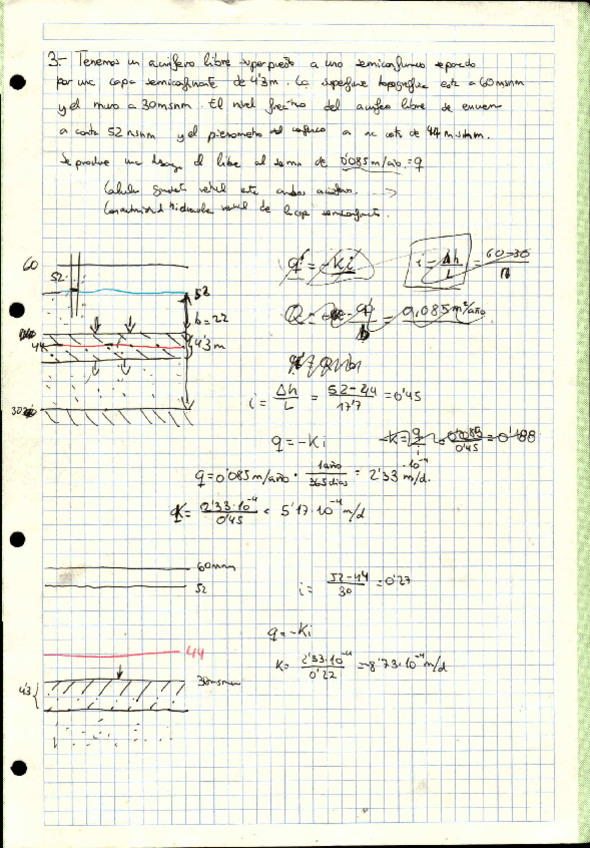 3- Tenemos un acuifero libre superpuesto a uno semiconfinado separado
por una capa semiconfinante de 4'3m. La superficie topografica esta a 60 msnm
y el muro a 30msnm. El nivel freatico del acuifero libre se encuentra
a cota 52 msnm y el piezometro del confinado a una cota de 44 msnm.
Se produce una recarga del libre al semi de 0'085 m/año = q
Calcular gradiente vertical entre ambos acuiferos. →
Conductividad hidraulica vertical de la capa semiconfinante.
60
52
52
b=22
44
4'3m
30
q = -Ki
i = Δh/L = 60-30
Q = q/b = 0,085m²/año
i = Δh/L = 52-44/17'7 = 0'45
q = -Ki
K = q/i = 0'085/0'45 = 0'188
q = 0'085 m/año · 1año/365dias = 2'33·10⁻⁴ m/d.
K = 2'33·10⁻⁴/0'45 = 5'17·10⁻⁴ m/d
60msnm
52
i = 52-44/30 = 0'27
q = -Ki
44
K = 2'33·10⁻⁴/0'22 = 8'73·10⁻⁴ m/d
30msnm
4'3